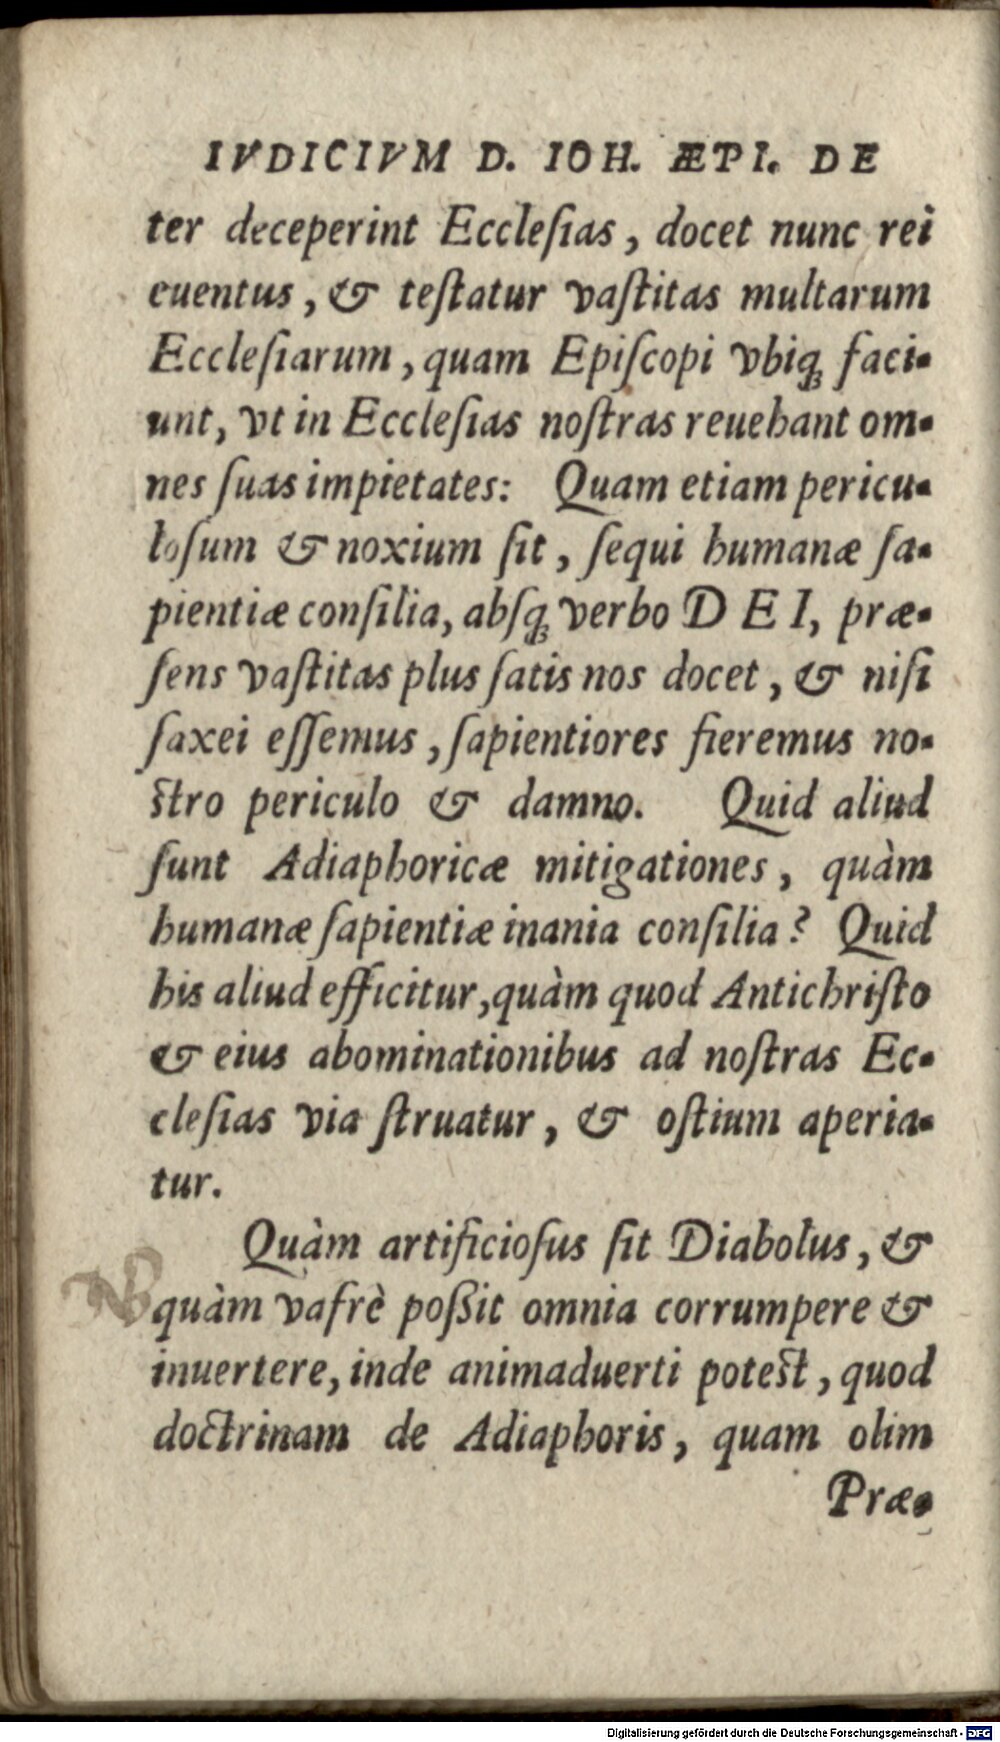 IVDICIVM D. IOH. ÆPI. DE
ter deceperint Eccleſias, docet nunc rei
euentus, & teſtatur vaſtitas multarum
Eccleſiarum, quam Epiſcopi vbiqꝫ faci-
unt, vt in Eccleſias noſtras reuehant om-
nes ſuas impietates: Quam etiam pericu-
loſum & noxium ſit, ſequi humanæ ſa-
pientiæ conſilia, abſqꝫ verbo DEI, præ-
ſens vaſtitas plus ſatis nos docet, & niſi
ſaxei eſſemus, ſapientiores fieremus no-
ſtro periculo & damno. Quid aliud
ſunt Adiaphoricæ mitigationes, quàm
humanæ ſapientiæ inania conſilia? Quid
his aliud efficitur, quàm quod Antichriſto
& eius abominationibus ad noſtras Ec-
cleſias via ſtruatur, & oſtium aperia-
tur.
Quàm artificioſus ſit Diabolus, &
NB
quàm vafrè poßit omnia corrumpere &
inuertere, inde animaduerti poteſt, quod
doctrinam de Adiaphoris, quam olim
Præ-
Digitalisierung gefördert durch die Deutsche Forschungsgemeinschaft - DFG